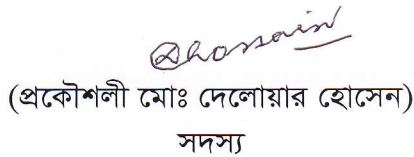 Dhossain
(প্রকৌশলী মোঃ দেলোয়ার হোসেন)
সদস্য